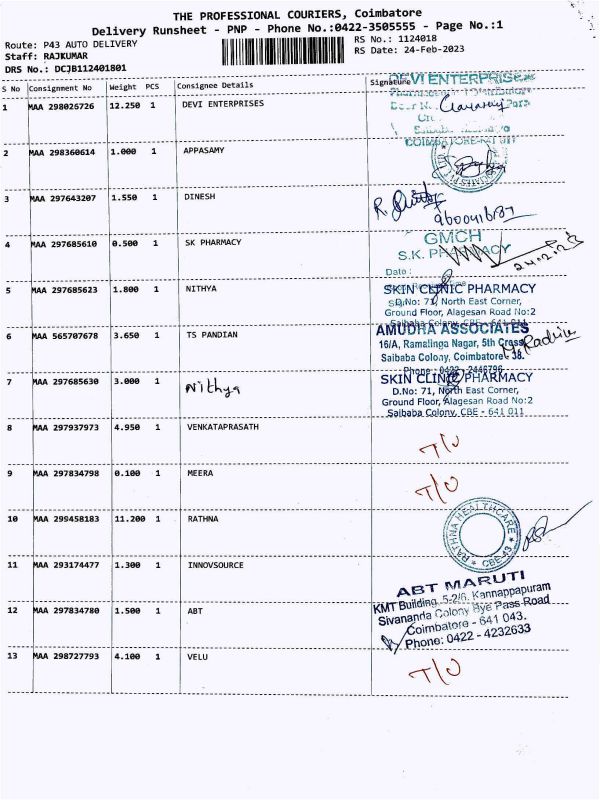 THE PROFESSIONAL COURIERS, Coimbatore
Delivery Runsheet - PNP - Phone No.:0422-3505555 - Page No.:1
Route: P43 AUTO DELIVERY
RS No.: 1124018
Staff: RAJKUMAR
RS Date: 24-Feb-2023
DRS No.: DCJB112401801
S No Consignment No Weight PCS Consignee Details Signature
1 MAA 298026726 12.250 1 DEVI ENTERPRISES
DEVI ENTERPRISES
2 MAA 298360614 1.000 1 APPASAMY
3 MAA 297643207 1.550 1 DINESH
4 MAA 297685610 0.500 1 SK PHARMACY
GMCH
S.K. PHARMACY
Date :
5 MAA 297685623 1.800 1 NITHYA
SKIN CLINIC PHARMACY
D.No: 71, North East Corner,
Ground Floor, Alagesan Road No:2
Saibaba Colony, CBE - 641 011
6 MAA 565707678 3.650 1 TS PANDIAN
AMUDHA ASSOCIATES
16/A, Ramalinga Nagar, 5th Cross,
Saibaba Colony, Coimbatore - 38.
Phone : 0422 - 2446796
7 MAA 297685630 3.000 1 Nithya
SKIN CLINIC PHARMACY
D.No: 71, North East Corner,
Ground Floor, Alagesan Road No:2
Saibaba Colony, CBE - 641 011
8 MAA 297937973 4.950 1 VENKATAPRASATH
T/O
9 MAA 297834798 0.100 1 MEERA
T/O
10 MAA 299458183 11.200 1 RATHNA
RATHNA HEALTHCARE
CBE-43
11 MAA 293174477 1.300 1 INNOVSOURCE
12 MAA 297834780 1.500 1 ABT
ABT MARUTI
KMT Building, 5-2/6, Kannappapuram
Sivananda Colony Bye Pass Road
Coimbatore - 641 043.
Phone: 0422 - 4232633
13 MAA 298727793 4.100 1 VELU
T/O